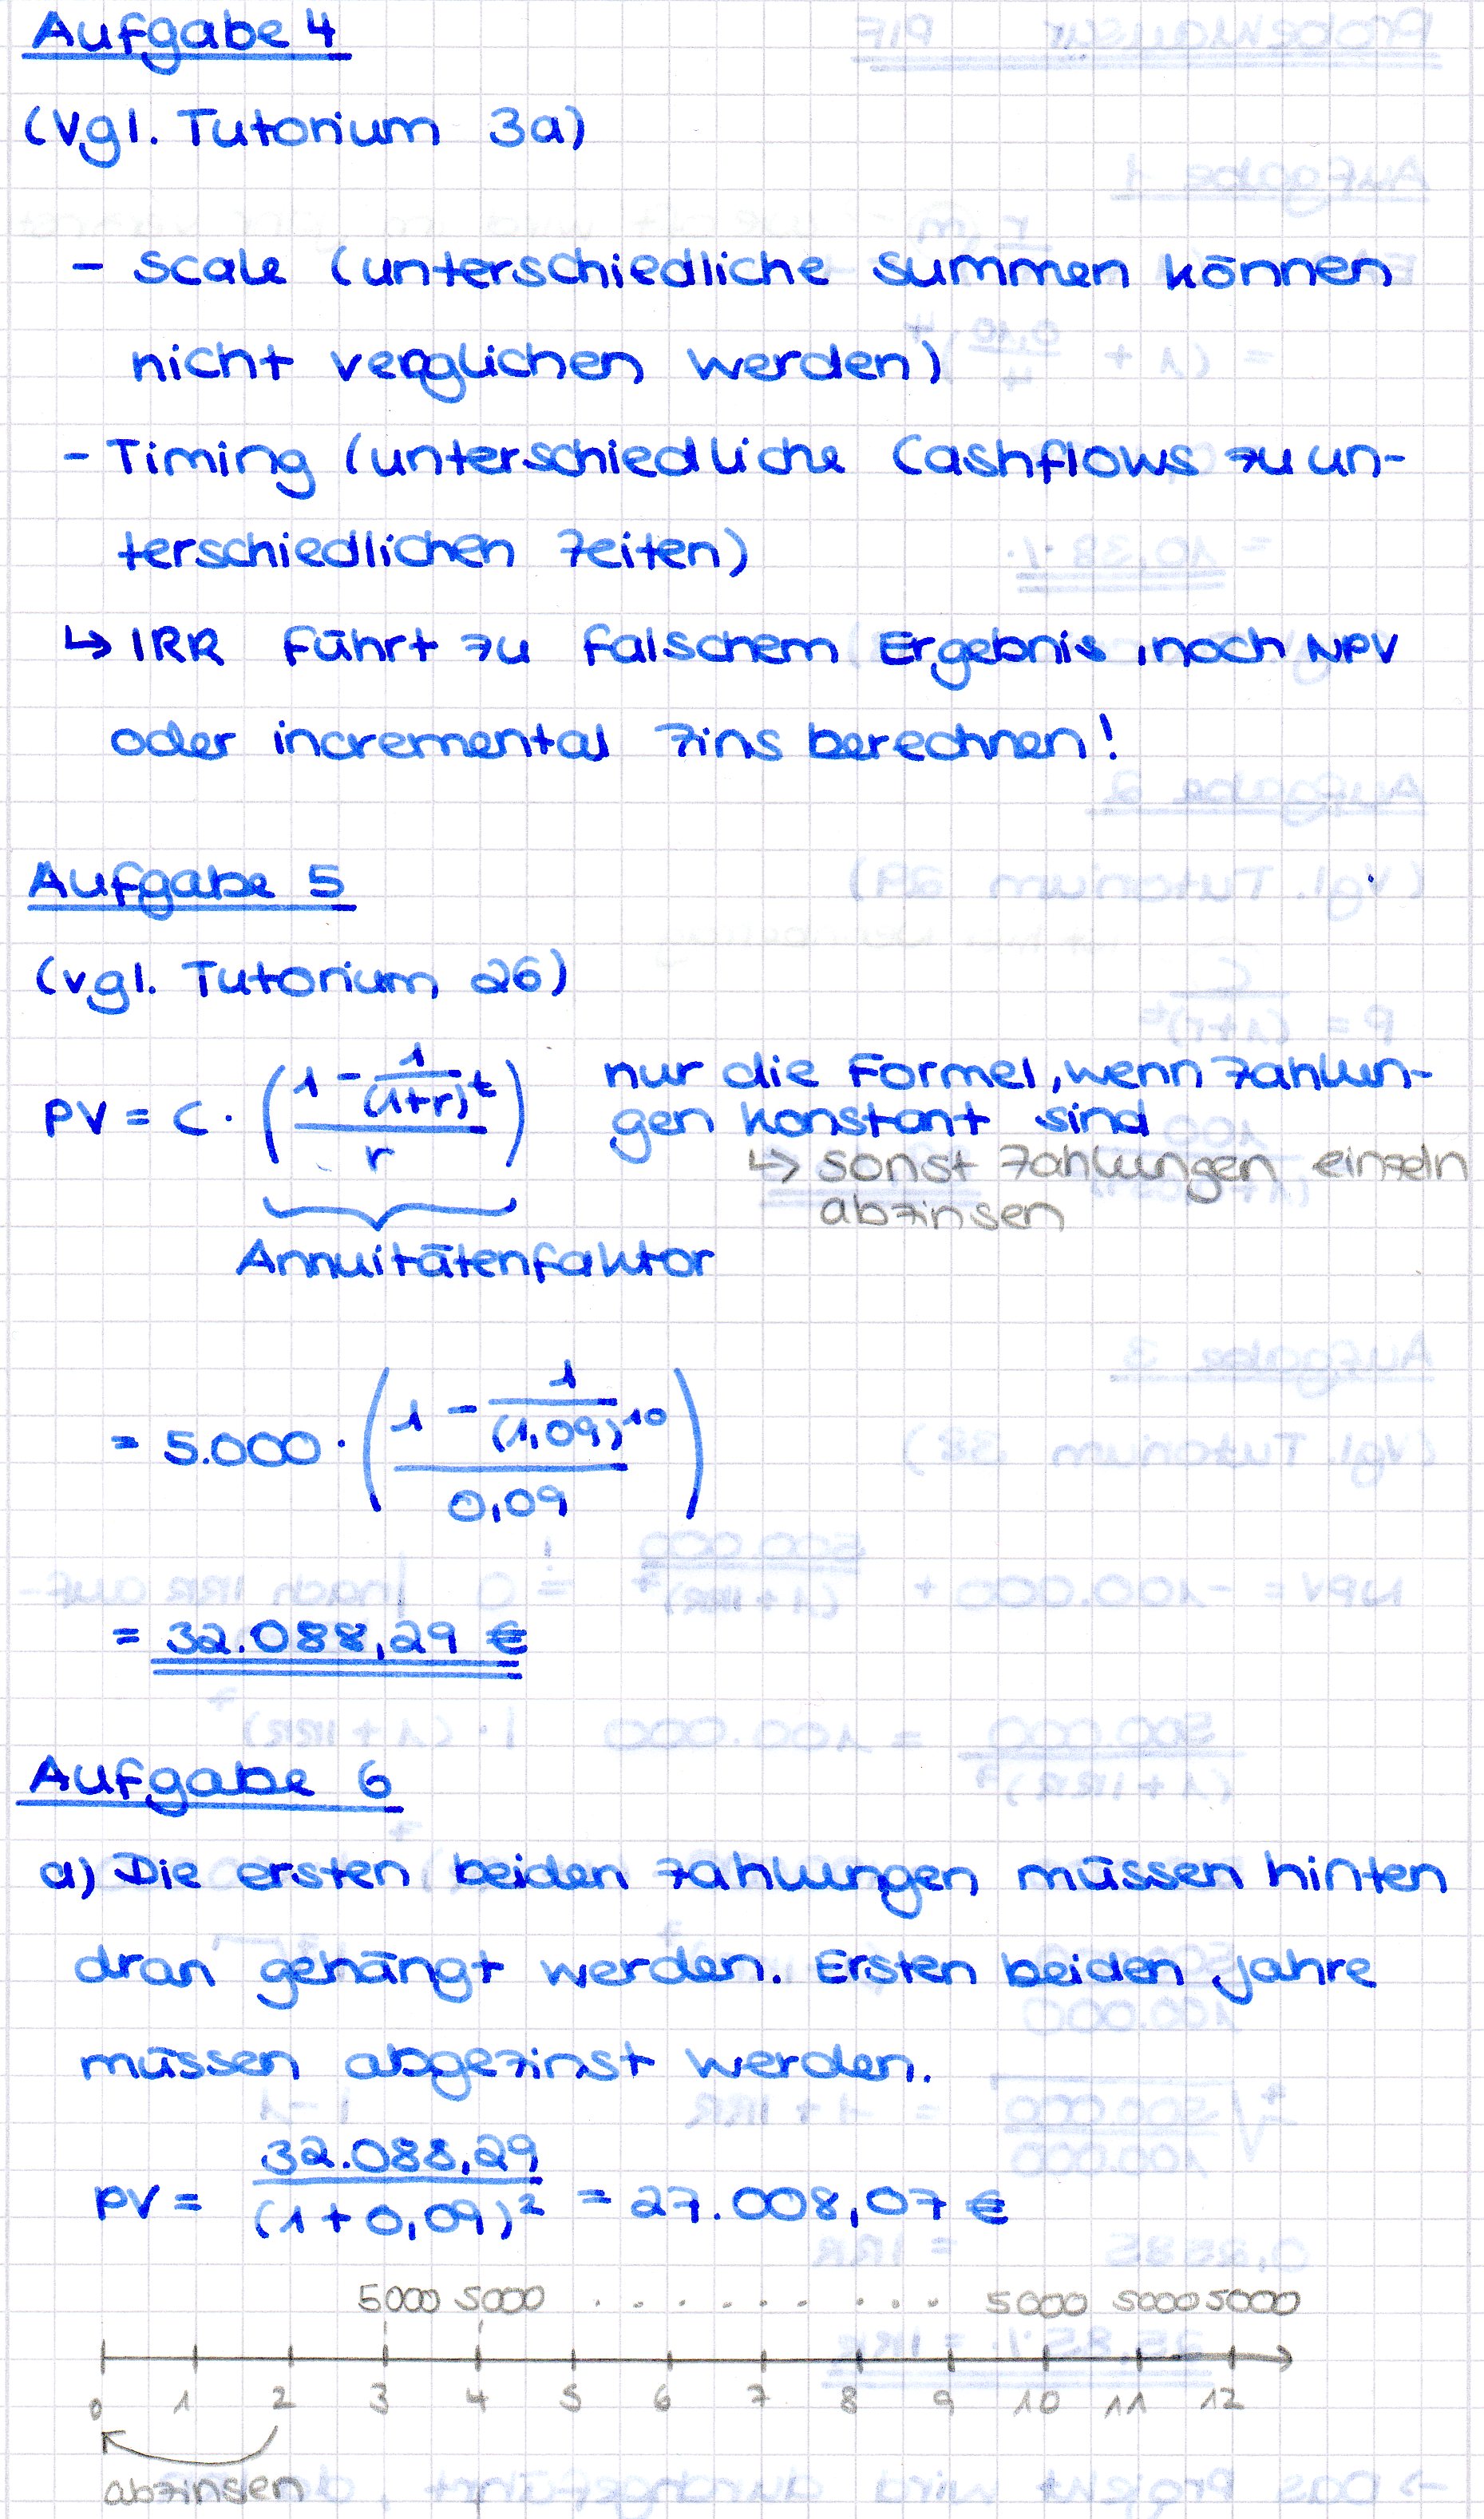 Aufgabe 4
(Vgl. Tutorium 3a)
- Scale (unterschiedliche Summen können
nicht verglichen werden)
- Timing (unterschiedliche Cashflows zu un-
terschiedlichen Zeiten)
↳ IRR führt zu falschem Ergebnis, noch NPV
oder incremental Zins berechnen!
Aufgabe 5
(vgl. Tutorium 26)
PV = C · ( (1 - 1/(1+r)^t) / r ) nur die Formel, wenn Zahlun-
gen konstant sind
↳ sonst Zahlungen einzeln
abzinsen
Annuitätenfaktor
= 5.000 · ( (1 - 1/(1,09)^10) / 0,09 )
= 32.088,29 €
Aufgabe 6
a) Die ersten beiden Zahlungen müssen hinten
dran gehängt werden. Ersten beiden Jahre
müssen abgezinst werden.
PV = 32.088,29 / (1+0,09)^2 = 27.008,07 €
5000 5000 . . . . . . . . . 5000 5000 5000
0 1 2 3 4 5 6 7 8 9 10 11 12
abzinsen